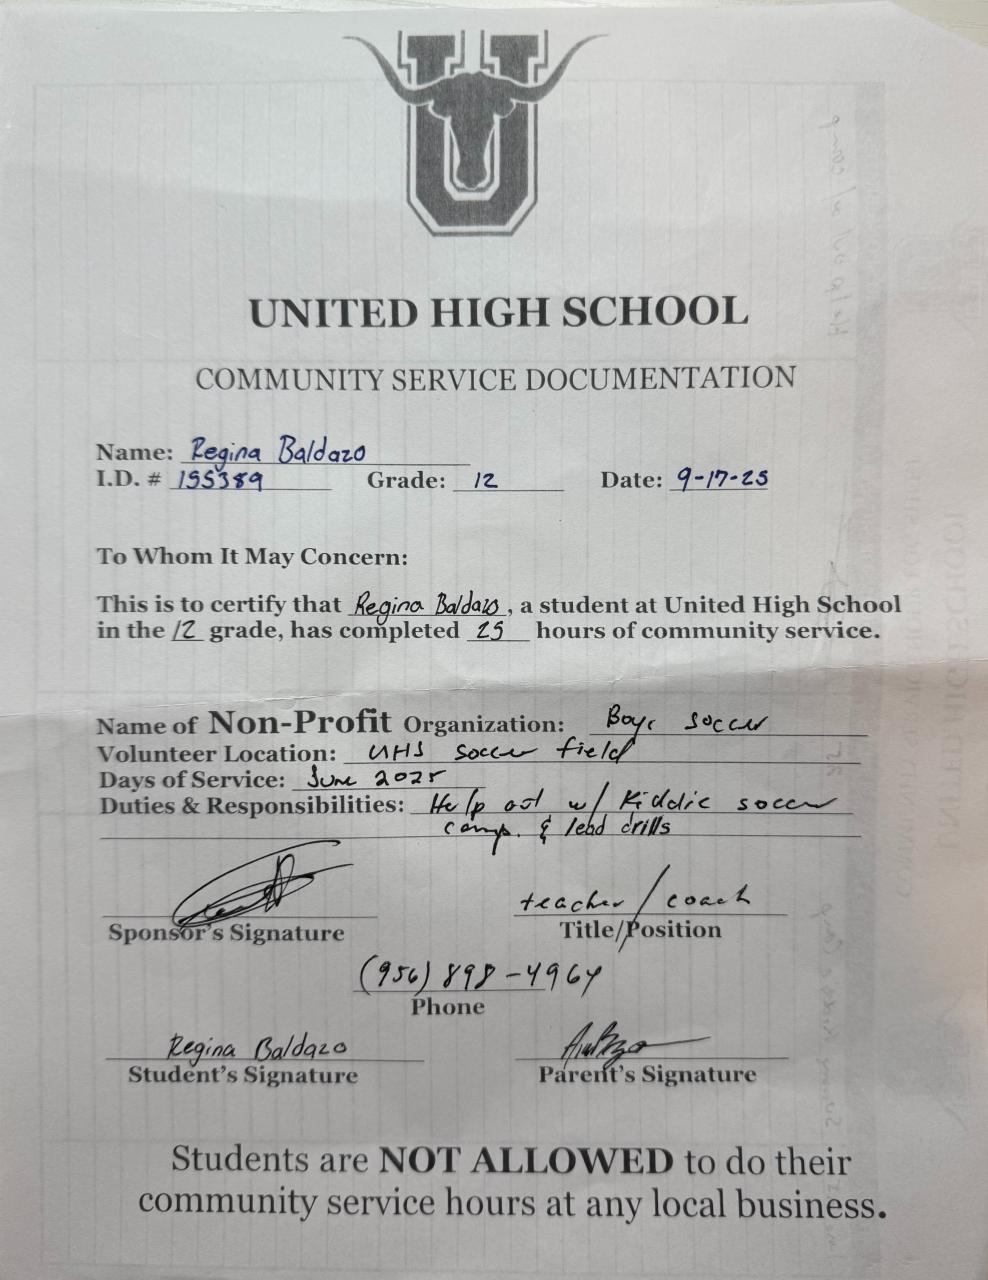 U
UNITED HIGH SCHOOL
COMMUNITY SERVICE DOCUMENTATION
Name: Regina Baldazo
I.D. # 155389 Grade: 12 Date: 9-17-25
To Whom It May Concern:
This is to certify that Regina Baldazo, a student at United High School
in the 12 grade, has completed 25 hours of community service.
Name of Non-Profit Organization: Boys soccer
Volunteer Location: UHS soccer field
Days of Service: June 2025
Duties & Responsibilities: Help out w/ Kiddie soccer
camp. & lead drills
teacher / coach
Sponsor's Signature Title/Position
(956) 898-4964
Phone
Regina Baldazo
Student's Signature Parent's Signature
Students are NOT ALLOWED to do their
community service hours at any local business.